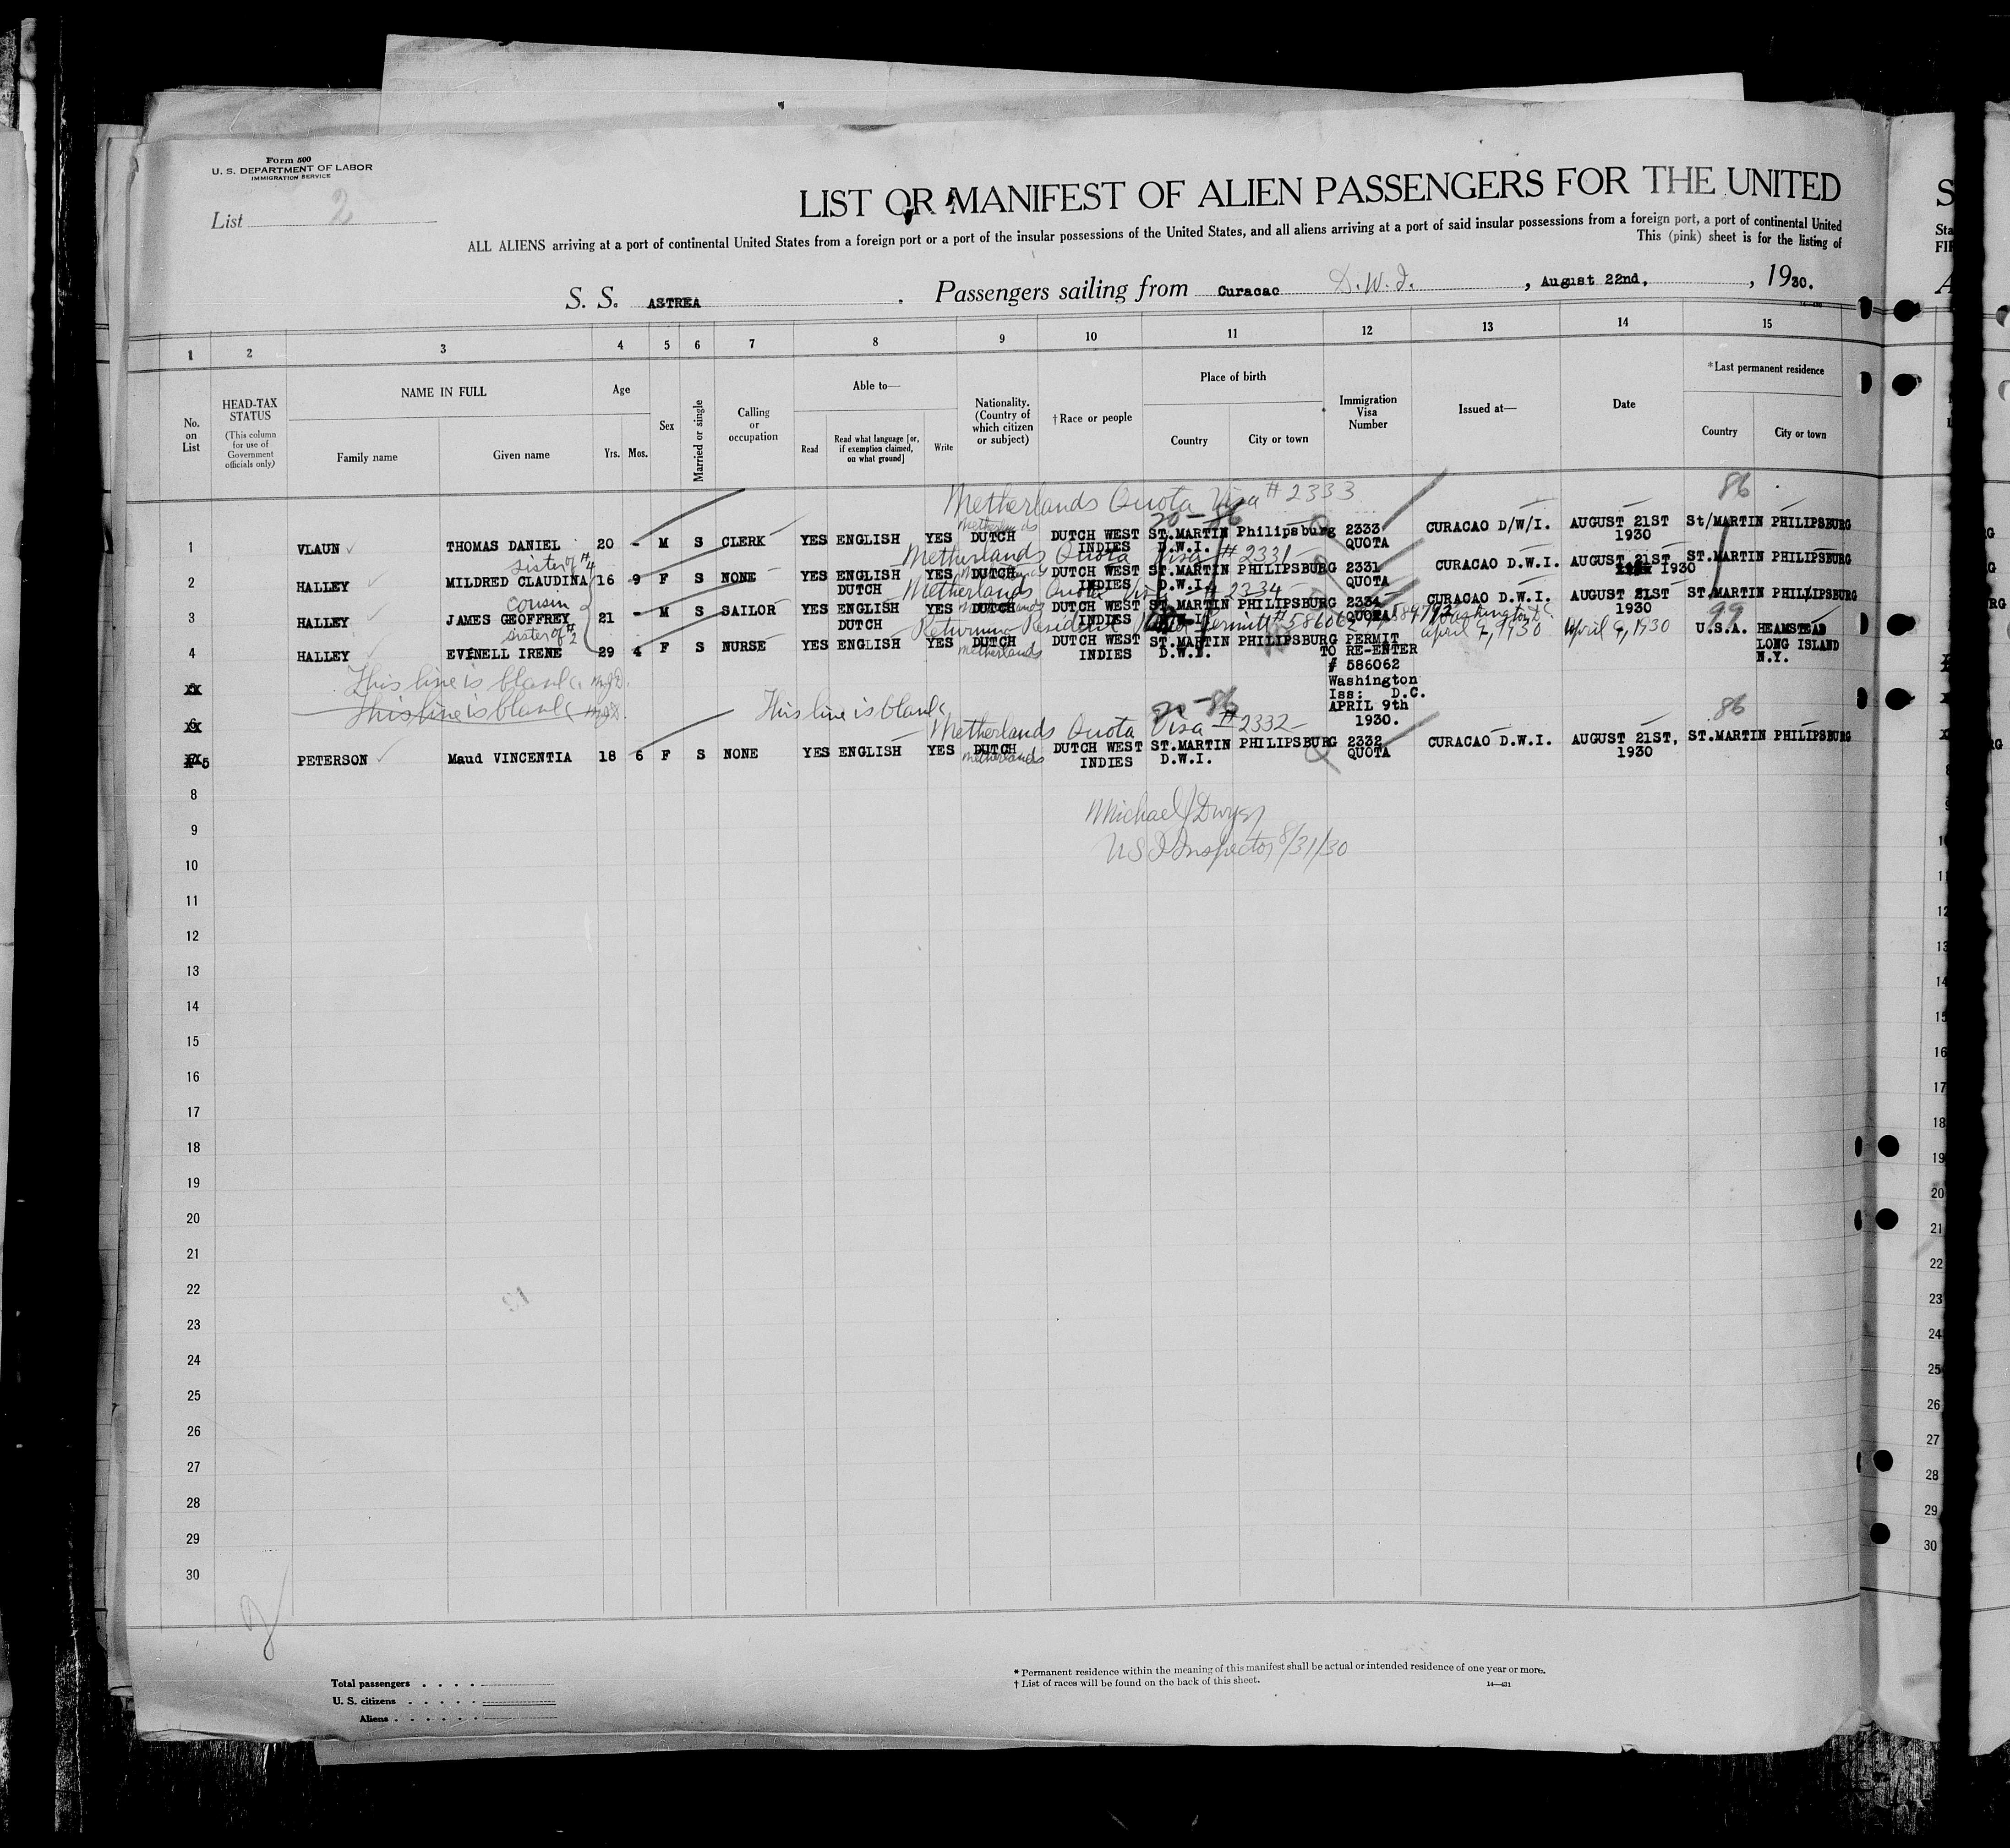 Form 500
U. S. DEPARTMENT OF LABOR
IMMIGRATION SERVICE
List 2
LIST OR MANIFEST OF ALIEN PASSENGERS FOR THE UNITED
ALL ALIENS arriving at a port of continental United States from a foreign port or a port of the insular possessions of the United States, and all aliens arriving at a port of said insular possessions from a foreign port, a port of continental United
This (pink) sheet is for the listing of
S. S. ASTREA . Passengers sailing from Curacao D.W.I. , August 22nd, , 1930.
1 2 3 4 5 6 7 8 9 10 11 12 13 14 15
No. on List
HEAD-TAX STATUS
(This column for use of Government officials only)
NAME IN FULL
Family name Given name
Age
Yrs. Mos.
Sex
Married or single
Calling or occupation
Able to—
Read
Read what language [or, if exemption claimed, on what ground]
Write
Nationality. (Country of which citizen or subject)
†Race or people
Place of birth
Country City or town
Immigration Visa Number
Issued at—
Date
*Last permanent residence
Country City or town
Netherlands Quota Visa #2333
20-86
86
Netherlands
1 VLAUN THOMAS DANIEL 20 - M S CLERK YES ENGLISH YES DUTCH DUTCH WEST ST.MARTIN Philipsburg 2333 CURACAO D/W/I. AUGUST 21ST St/MARTIN PHILIPSBURG
INDIES D.W.I. QUOTA 1930
sister of #4
Netherlands Quota Visa #2331
2 HALLEY MILDRED CLAUDINA 16 9 F S NONE YES ENGLISH YES DUTCH DUTCH WEST ST.MARTIN PHILIPSBURG 2331 CURACAO D.W.I. AUGUST 21ST ST.MARTIN PHILIPSBURG
DUTCH INDIES D.W.I. QUOTA 1930
cousin
Netherlands Quota Visa #2334
3 HALLEY JAMES GEOFFREY 21 - M S SAILOR YES ENGLISH YES DUTCH DUTCH WEST ST.MARTIN PHILIPSBURG 2334 CURACAO D.W.I. AUGUST 21ST ST.MARTIN PHILIPSBURG
DUTCH INDIES QUOTA 1930
sister of #2
Returning Resident Permit #586062 Washington D.C.
April 9, 1930 April 9, 1930
99
4 HALLEY EVINELL IRENE 29 4 F S NURSE YES ENGLISH YES DUTCH DUTCH WEST ST.MARTIN PHILIPSBURG PERMIT U.S.A. HEAMSTEAD
Netherlands INDIES D.W.I. TO RE-ENTER LONG ISLAND
# 586062 N.Y.
Washington
Iss: D.C.
APRIL 9th
1930.
This line is blank. MJD.
6 This line is blank MJD. This line is blank
20-86
86
Netherlands Quota Visa #2332
5 PETERSON Maud VINCENTIA 18 6 F S NONE YES ENGLISH YES DUTCH DUTCH WEST ST.MARTIN PHILIPSBURG 2332 CURACAO D.W.I. AUGUST 21ST, ST.MARTIN PHILIPSBURG
Netherlands INDIES D.W.I. QUOTA 1930
Michael J Dwyer
US I Inspector 8/31/30
8
9
10
11
12
13
14
15
16
17
18
19
20
21
22
23
24
25
26
27
28
29
30
Total passengers
U. S. citizens
Aliens
* Permanent residence within the meaning of this manifest shall be actual or intended residence of one year or more.
† List of races will be found on the back of this sheet.
14—431